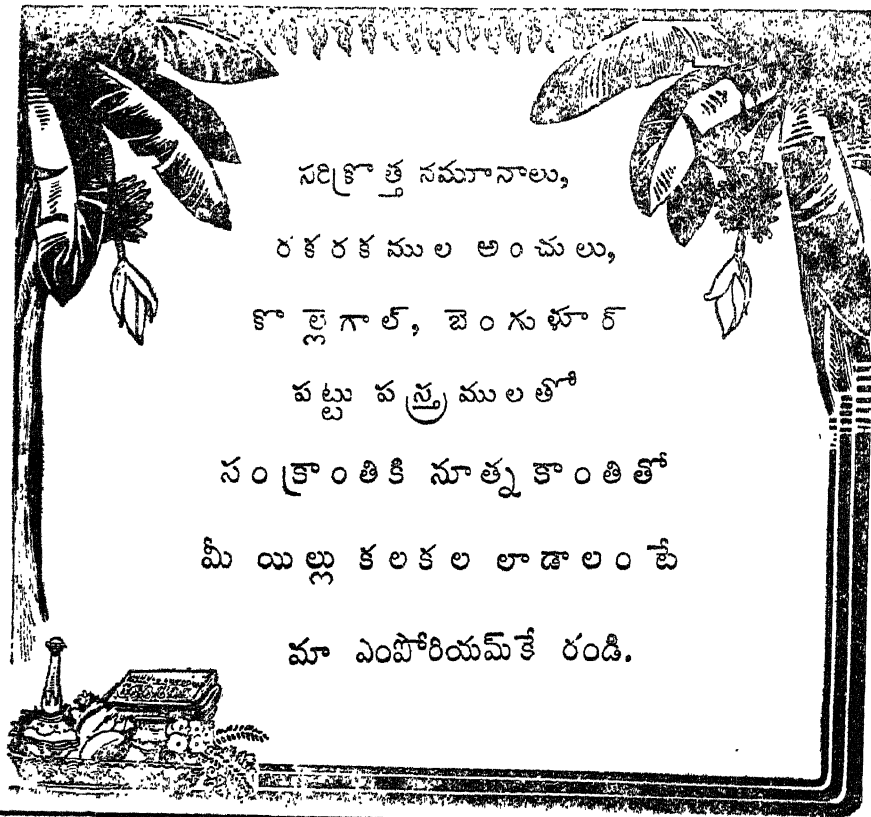 సరిక్రొత్త నమూనాలు,
రకరకముల అంచులు,
కొల్లెగాల్, బెంగుళూర్
పట్టు పస్త్రములతో
సంక్రాంతికి నూత్నకాంతితో
మీ యిల్లు కలకల లాడాలంటే
మా ఎంపోరియమ్‌కే రండి.